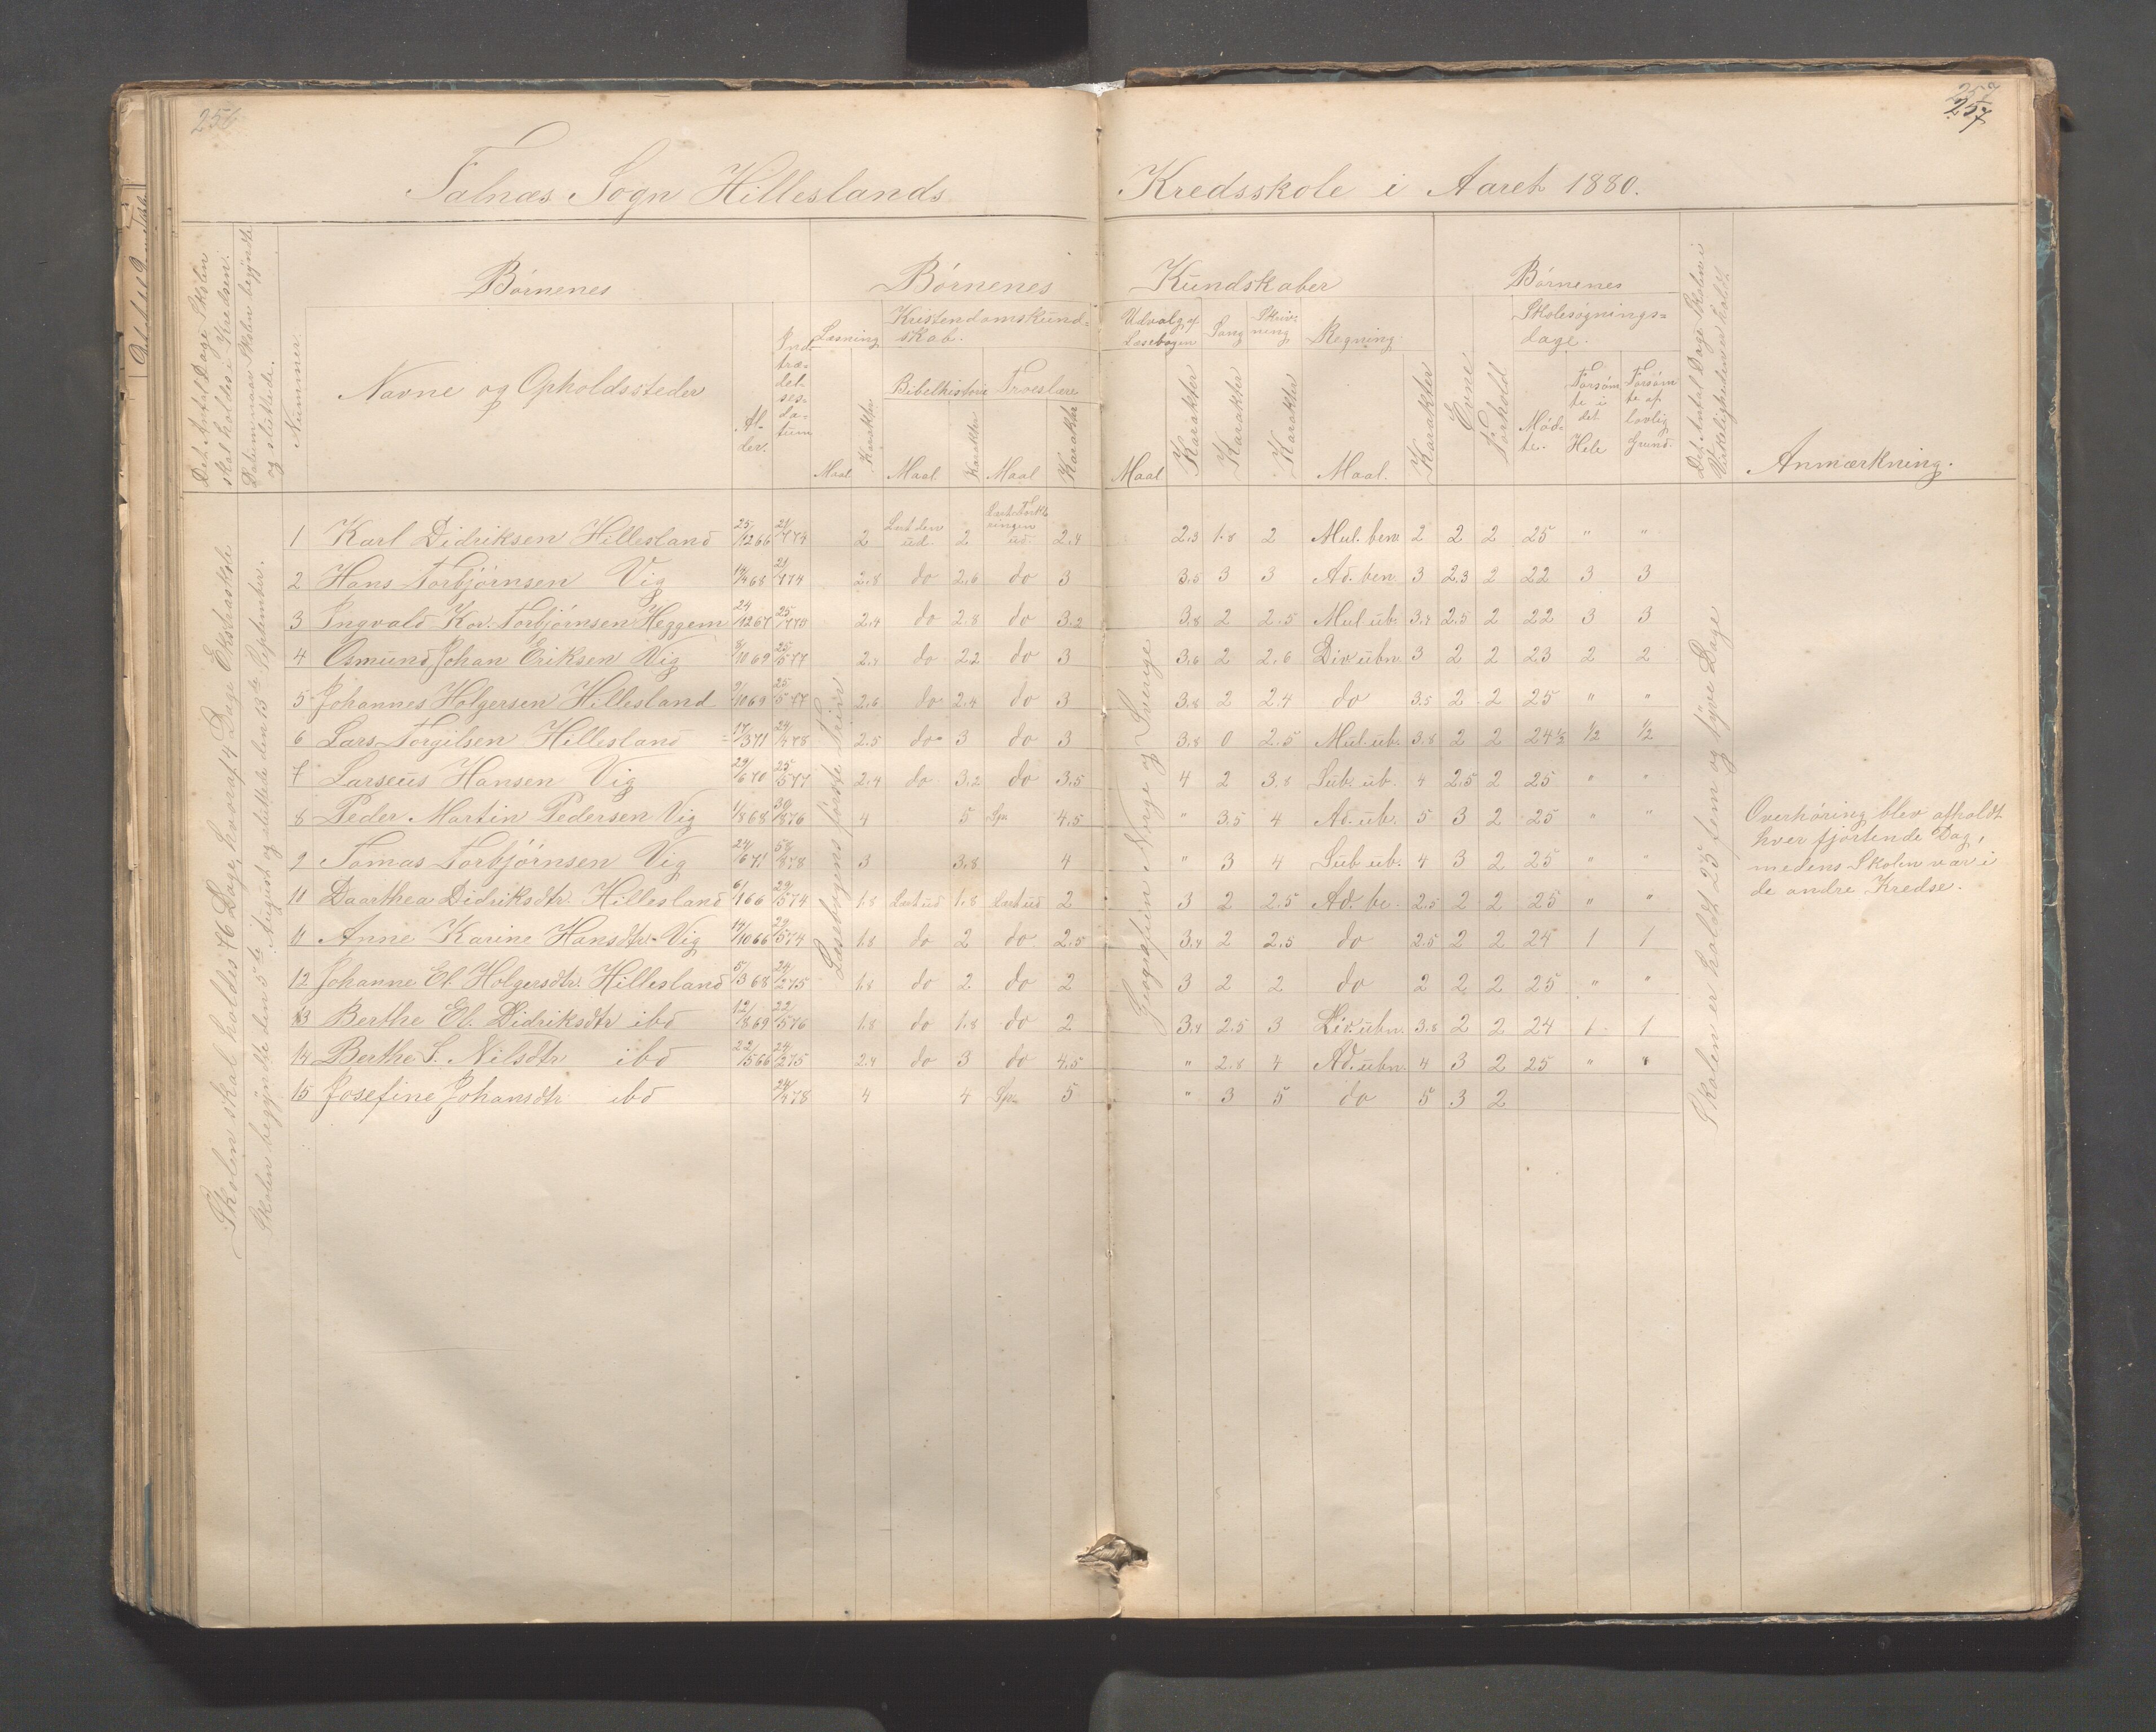 256
257
257
Falnæs Sogn Hilleslands Kredsskole i Aaret 1880.
Det Antal Dage Skolen skal holdes i Kredsen.
Datum naar Skolen begyndte og sluttede.
Nummer.
Børnenes
Navne og Opholdssteder
Al-
der.
Ind-
træ-
del-
ses-
da-
tum
Børnenes Kundskaber
Læsning
Maal
Karakter
Kristendomskund-
skab.
Bibelhistorie
Maal
Karakter
Troeslære
Maal
Karakter
Udvalg af
Læsebogen
Maal
Karakter
Sang
Karakter
Skriv-
ning
Karakter
Regning
Maal.
Karakter
Evne
Forhold
Børnenes
Skolesøgnings=
dage.
Mød-
te.
Forsøm
te i
det
Hele
Forsøm
te af
lovlig
Grund.
Det Antal Dage Skolen i Virkeligheden er holdt
Anmærkning.
Skolen skal holdes 76 Dage, hvoraf 4 Dage Ekstraskole
Skolen begyndte den 5te August og sluttede den 13de September.
Læsebogens første Trin
Geografien Norge og Sverige
Skolen er holdt 25 fem og tyve Dage
1 Karl Didriksen Hillesland 25/12 66 21/1 74 2 Læst den ud. 2 Læst Forkl ringen ud 2.4 2.3 1.8 2 Mul. ben. 2 2 2 25 " "
2 Hans Torbjørnsen Vig 14/4 68 21/1 74 2.8 do 2.6 do 3 3.5 3 3 Ad. ben. 3 2.3 2 22 3 3
3 Ingvald Kor. Torbjørnsen Heggem 24/12 67 25/1 70 2.4 do 2.8 do 3.2 3.8 2 2.5 Mul ub. 3.4 2.5 2 22 3 3
4 Osmund Johan Eriksen Vig 8/10 69 25/5 77 2.4 do 2.2 do 3 3.6 2 2.6 Div ubn. 3 2 2 23 2 2
5 Johannes Holgersen Hillesland 9/10 69 25/5 77 2.6 do 2.4 do 3 3.8 2 2.4 do 3.5 2 2 25 " "
6 Lars Torgilsen Hillesland 17/3 71 24/4 78 2.5 do 3 do 3 3.8 0 2.5 Mul. ub. 3.8 2 2 24½ ½ ½
7 Larseus Hansen Vig 29/6 70 25/5 77 2.4 do 3.2 do 3.5 4 2 3.8 Sub. ub. 4 2.5 2 25 " "
8 Peder Martin Pedersen Vig 1/8 68 30/8 76 4 5 Spr 4.5 " 3.5 4 Ad. ub. 5 3 2 25 " "
9 Tomas Torbjørnsen Vig 24/6 71 5/8 78 3 3.8 4 " 3 4 Sub ub. 4 3 2 25 " "
10 Daarthea Didriksdtr. Hillesland 6/1 66 29/5 74 1.8 Læst ud 1.8 Læst ud 2 3 2 2.5 Ad. be. 2.5 2 2 25 " "
11 Anne Karine Hansdtr. Vig 14/10 66 29/5 74 1.8 do 2 do 2.5 3.4 2 2.5 do 2.5 2 2 24 1 1
12 Johanne El. Holgersdtr. Hillesland 5/3 68 24/2 75 1.8 do 2 do 2 3 2 2 do 2 2 2 25 " "
13 Berthe El. Didriksdtr ibd 12/8 69 22/5 76 1.8 do 1.8 do 2 3.4 2.5 3 Div. ubn. 3.8 2 2 24 1 1
14 Berthe S. Nilsdtr ibd 22/5 66 24/2 75 2.4 do 3 do 4.5 " 2.8 4 Ad. ubn. 4 3 2 25 " "
15 Josefine Johansdtr ibd 24/4 78 4 4 Spr 5 " 3 5 do 5 3 2
Overhøring blev afholdt
hver fjortende Dag,
medens Skolen var i
de andre Kredse.